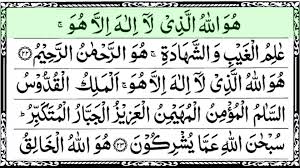 هُوَ اللّٰهُ الَّذِیْ لَاۤ اِلٰهَ اِلَّا هُوَ ۚ
عٰلِمُ الْغَیْبِ وَ الشَّهَادَةِ ۚ هُوَ الرَّحْمٰنُ الرَّحِیْمُ ﴿۲۲﴾
هُوَ اللّٰهُ الَّذِیْ لَاۤ اِلٰهَ اِلَّا هُوَ ۚ اَلْمَلِكُ الْقُدُّوْسُ
السَّلٰمُ الْمُؤْمِنُ الْمُهَیْمِنُ الْعَزِیْزُ الْجَبَّارُ الْمُتَكَبِّرُ ؕ
سُبْحٰنَ اللّٰهِ عَمَّا یُشْرِكُوْنَ ﴿۲۳﴾ هُوَ اللّٰهُ الْخَالِقُ